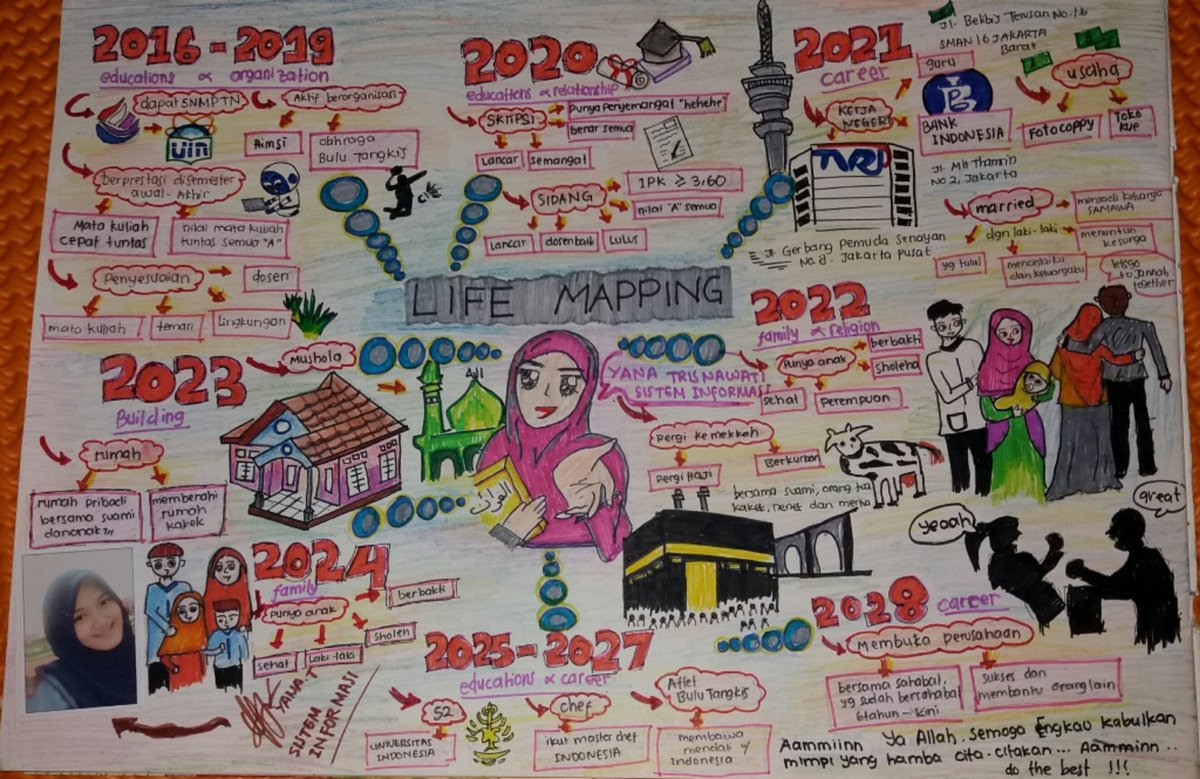 LIFE MAPPING
YANA TRISNAWATI
SISTEM INFORMASI
2016 - 2019
educations & organization
dapat SNMPTN
Uin
Aktif berorganisasi
Rimsi
olahraga
Bulu Tangkis
Berprestasi disemester
awal-Akhir
Mata kuliah
cepat tuntas
nilai mata kuliah
tuntas semua "A"
Penyesuaian
dosen
mata kuliah
teman
Lingkungan
2020
educations & relationship
SKRIPSI
Punya Penyemangat "hehehe"
Lancar
semangat
SIDANG
IPK ≥ 3,60
nilai "A" semua
Lancar
dosen baik
Lulus
2021
career
KERJA
NEGERI
guru
Jl. Belibis Terusan No.16
SMAN 16 JAKARTA
Barat
BANK
INDONESIA
Jl. MH Thamrin
No 2, Jakarta
TVRI
Jl. Gerbang Pemuda Senayan
No.8. Jakarta Pusat
usaha
Fotocoppy
Toko
kue
married
menjadi keluarga
SAMAWA
menuntun
kesurga
dgn laki-laki
yg tulus
mencintaiku
dan keluargaku
to Jannah
together
2022
family & religion
Punya anak
berbakti
sholeha
sehat
Perempuan
Pergi ke mekkah
Pergi Haji
Berkurban
bersama suami, orang tua
2023
Building
Mushola
rumah
rumah pribadi
bersama suami
membenahi
rumah
kakek
2024
family
Punya anak
berbakti
sehat
Laki laki
sholeh
YANA.T
SISTEM
INFORMASI
2025-2027
educations & career
S2
UNIVERSITAS
INDONESIA
chef
ikut master chef
INDONESIA
Atlet
Bulu Tangkis
membawa
Indonesia
2028
career
yeaah
great
Membuka perusahaan
bersama sahabat,
yg sudah bersahabat
6tahun - kini
sukses dan
membantu orang lain
Aammiinn Ya Allah. Semoga Engkau kabulkan
mimpi yang hamba cita-citakan... Aamminn..
do the best !!!